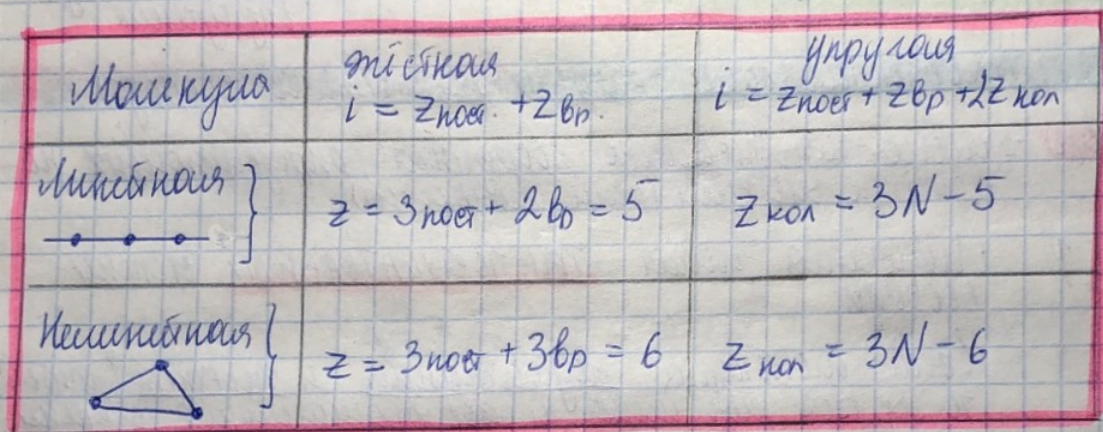 Молекула
жёсткая
i = Zпост. + Zвр.
упругая
i = Zпост + Zвр + 2Zкол
Линейная
z = 3пост + 2вр = 5
Zкол = 3N - 5
Нелинейная
z = 3пост + 3вр = 6
Zкол = 3N - 6